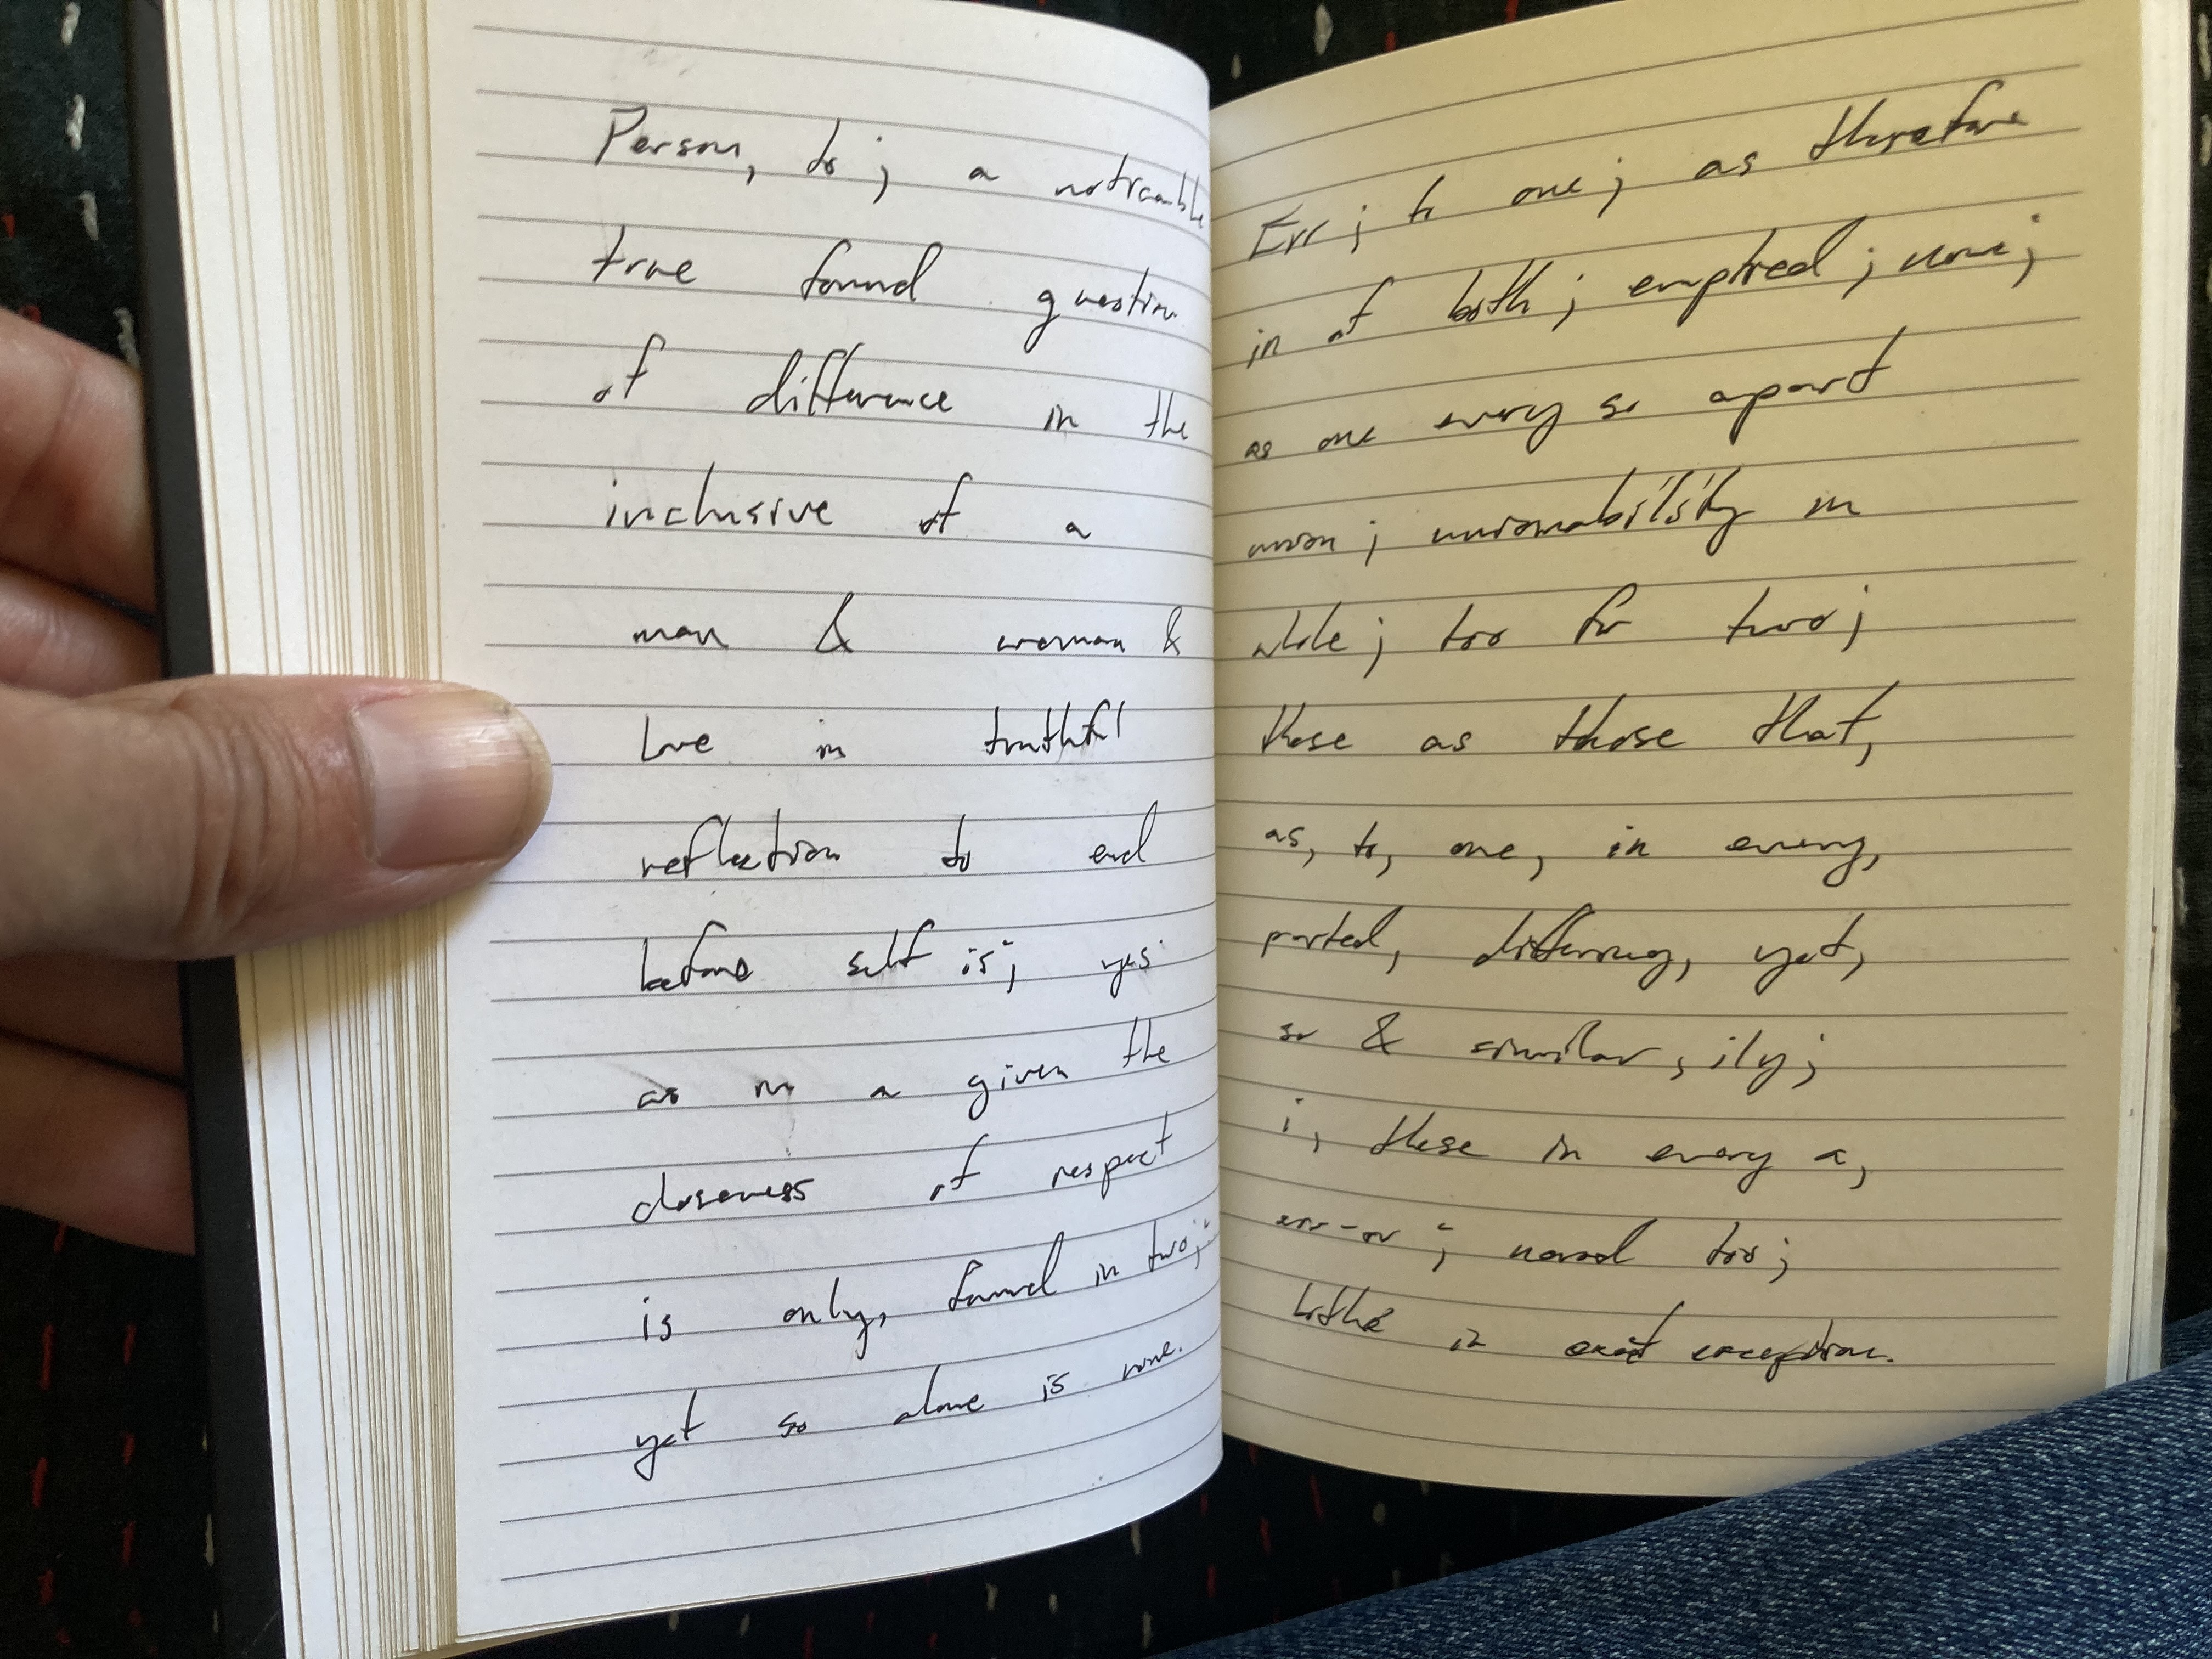 Person, to ; a
true found question
of difference in the
inclusive of a
man & woman &
Love in truthful
reflection to end
before self is ; yes
as in a given the
closeness of respect
is only, found in two;
yet so alone is none.
Err ; to one ; as therefore
in of both ; emptied ; none ;
as one every so apart
union ; in
while ; too for two ;
these as those that,
as, to, one, in every,
parted, differing, yet,
so & similar, ily ;
i, these in every a,
err-or ; too ;
in exact exception.